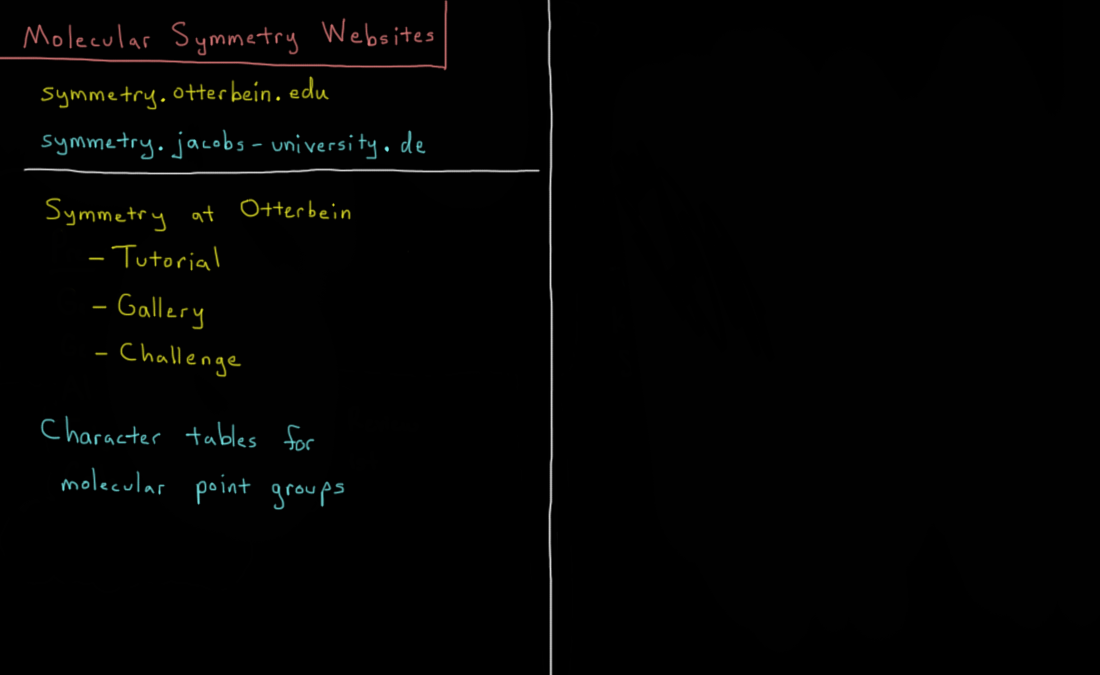 Molecular Symmetry Websites
symmetry.otterbein.edu
symmetry.jacobs-university.de
Symmetry at Otterbein
- Tutorial
- Gallery
- Challenge
Character tables for
molecular point groups